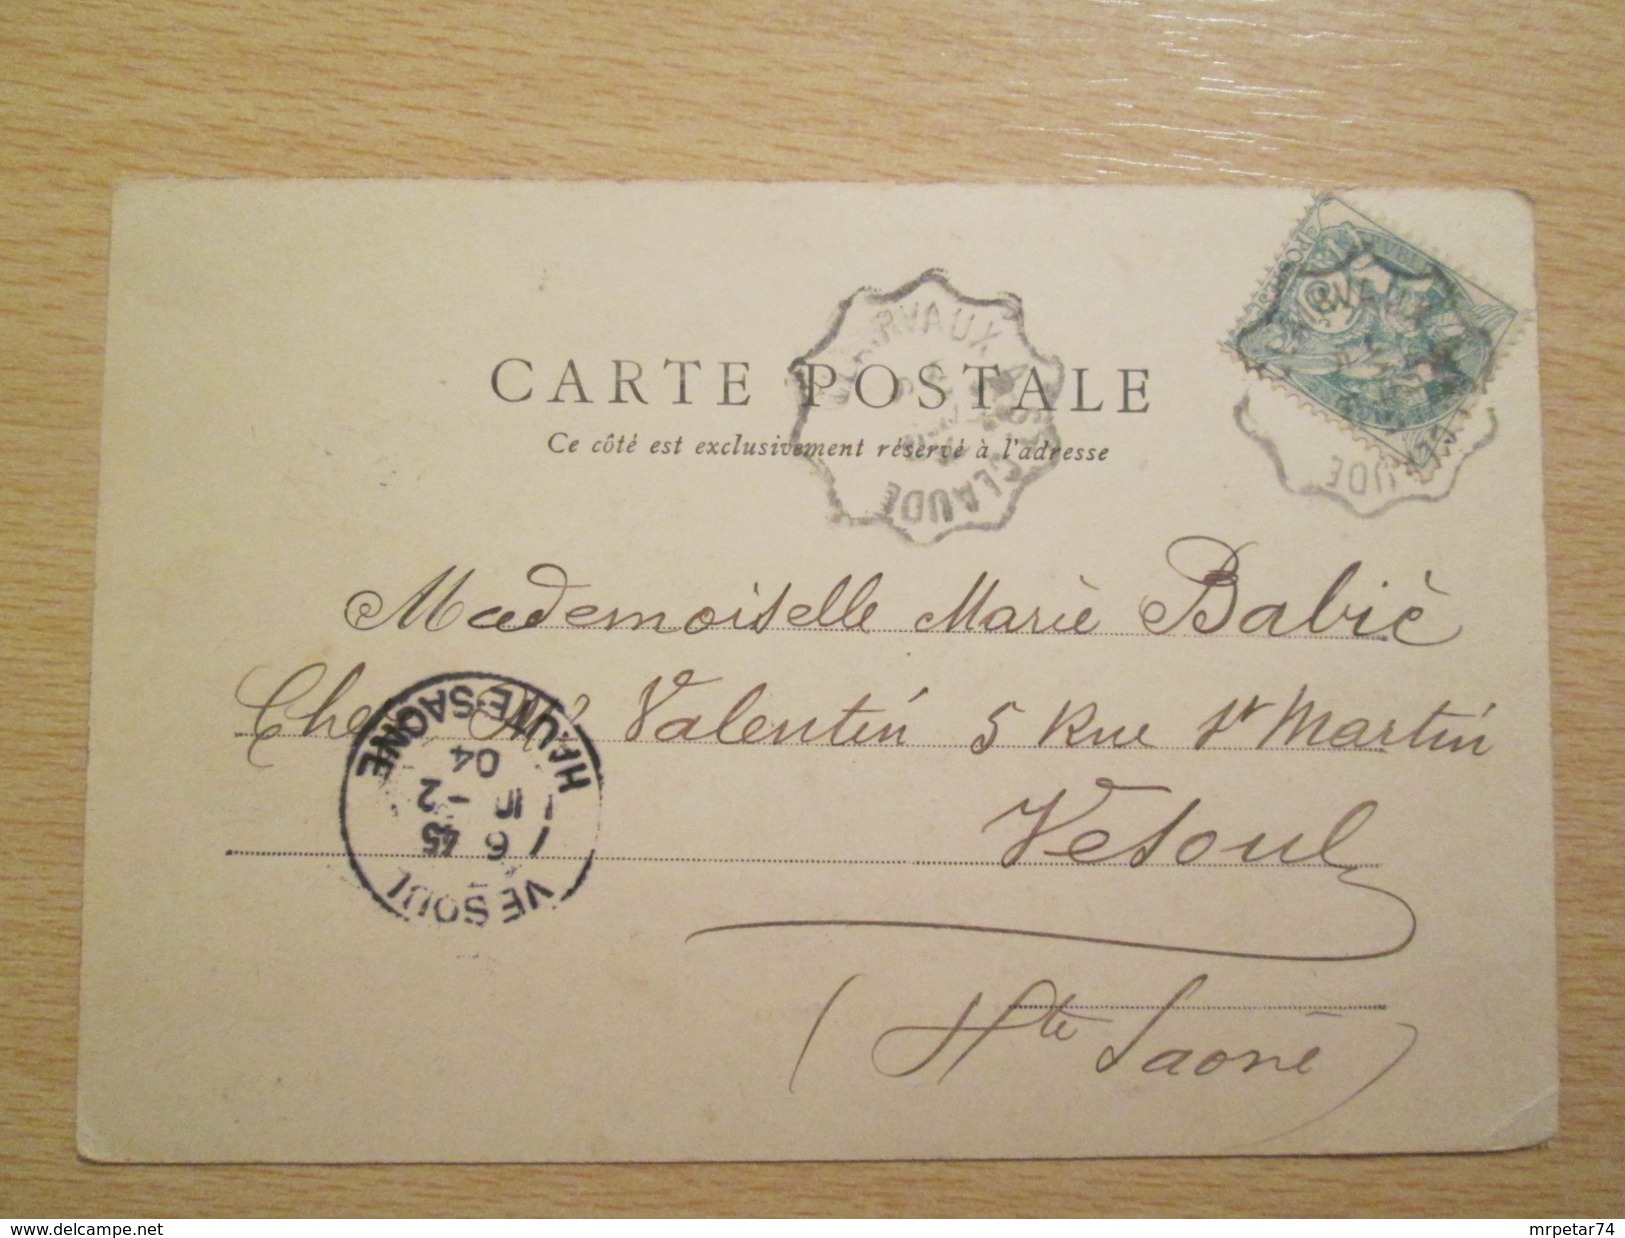 CARTE POSTALE
Ce côté est exclusivement réservé à l'adresse
CLAUDE
Mademoiselle Marie Babié
Chez Mr Valentin 5 Rue St Martin
Vesoul
(Hte Saone)
VESOUL
6 45
-2
04
HAUTE-SAONE
www.delcampe.net
mrpetar74